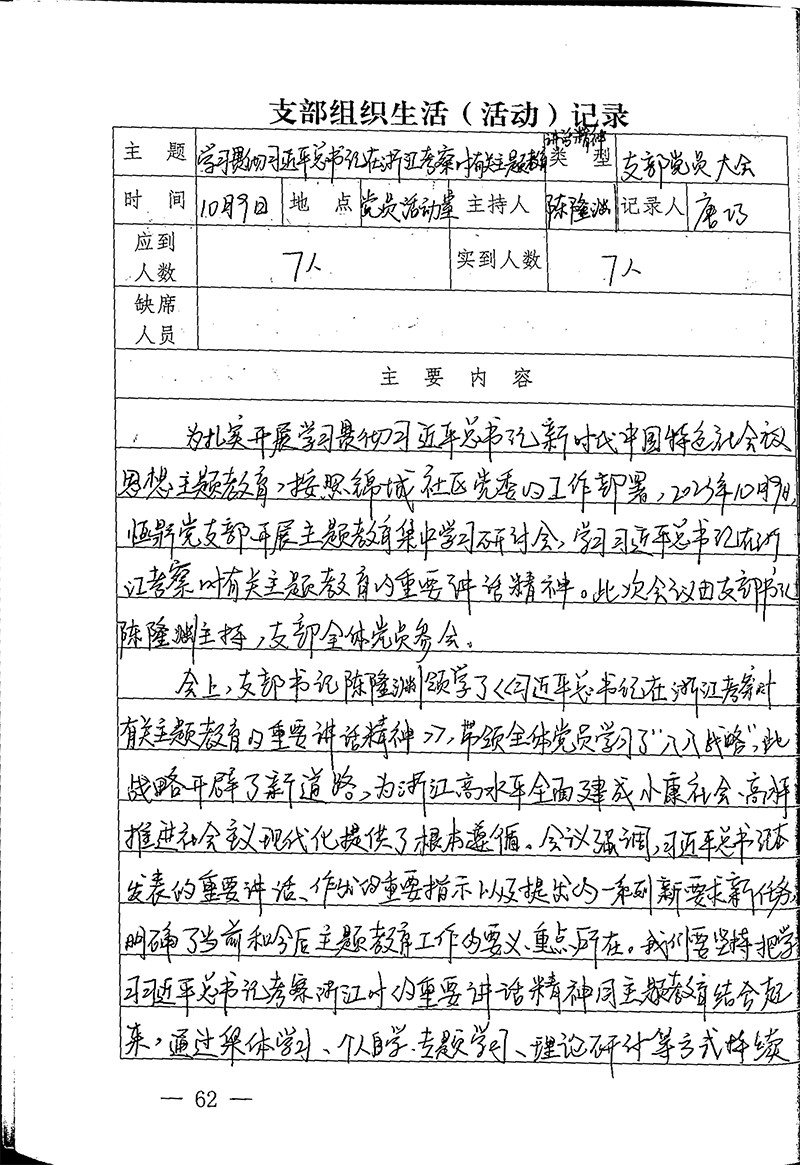 支部组织生活（活动）记录
讲话精神
主题 学习贯彻习近平总书记在浙江考察时有关主题教育 类型 支部党员大会
时间 10月9日 地点 党员活动室 主持人 陈隆渊 记录人 唐巧
应到人数 7人 实到人数 7人
缺席人员
主要内容
为扎实开展学习贯彻习近平总书记新时代中国特色社会主义
思想主题教育，按照锦城社区党委的工作部署，2023年10月9日，
恒鼎党支部开展主题教育集中学习研讨会，学习习近平总书记在浙
江考察时有关主题教育的重要讲话精神。此次会议由支部书记
陈隆渊主持，支部全体党员参会。
会上，支部书记陈隆渊领学了《习近平总书记在浙江考察时
有关主题教育的重要讲话精神》，带领全体党员学习了“八八战略”，此
战略开辟了新道路，为浙江高水平全面建成小康社会、高水平
推进社会主义现代化提供了根本遵循。会议强调，习近平总书记
发表的重要讲话、作出的重要指示以及提出的一系列新要求新任务，
明确了当前和今后主题教育工作的要义、重点所在。我们要坚持把学
习习近平总书记考察浙江时的重要讲话精神同主题教育结合起
来，通过集体学习、个人自学、专题学习、理论研讨等方式持续
— 62 —